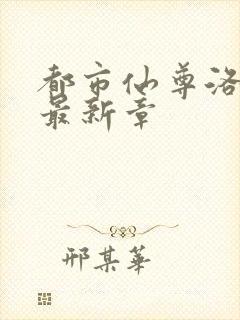 都市仙尊洛
最新章
邢某華